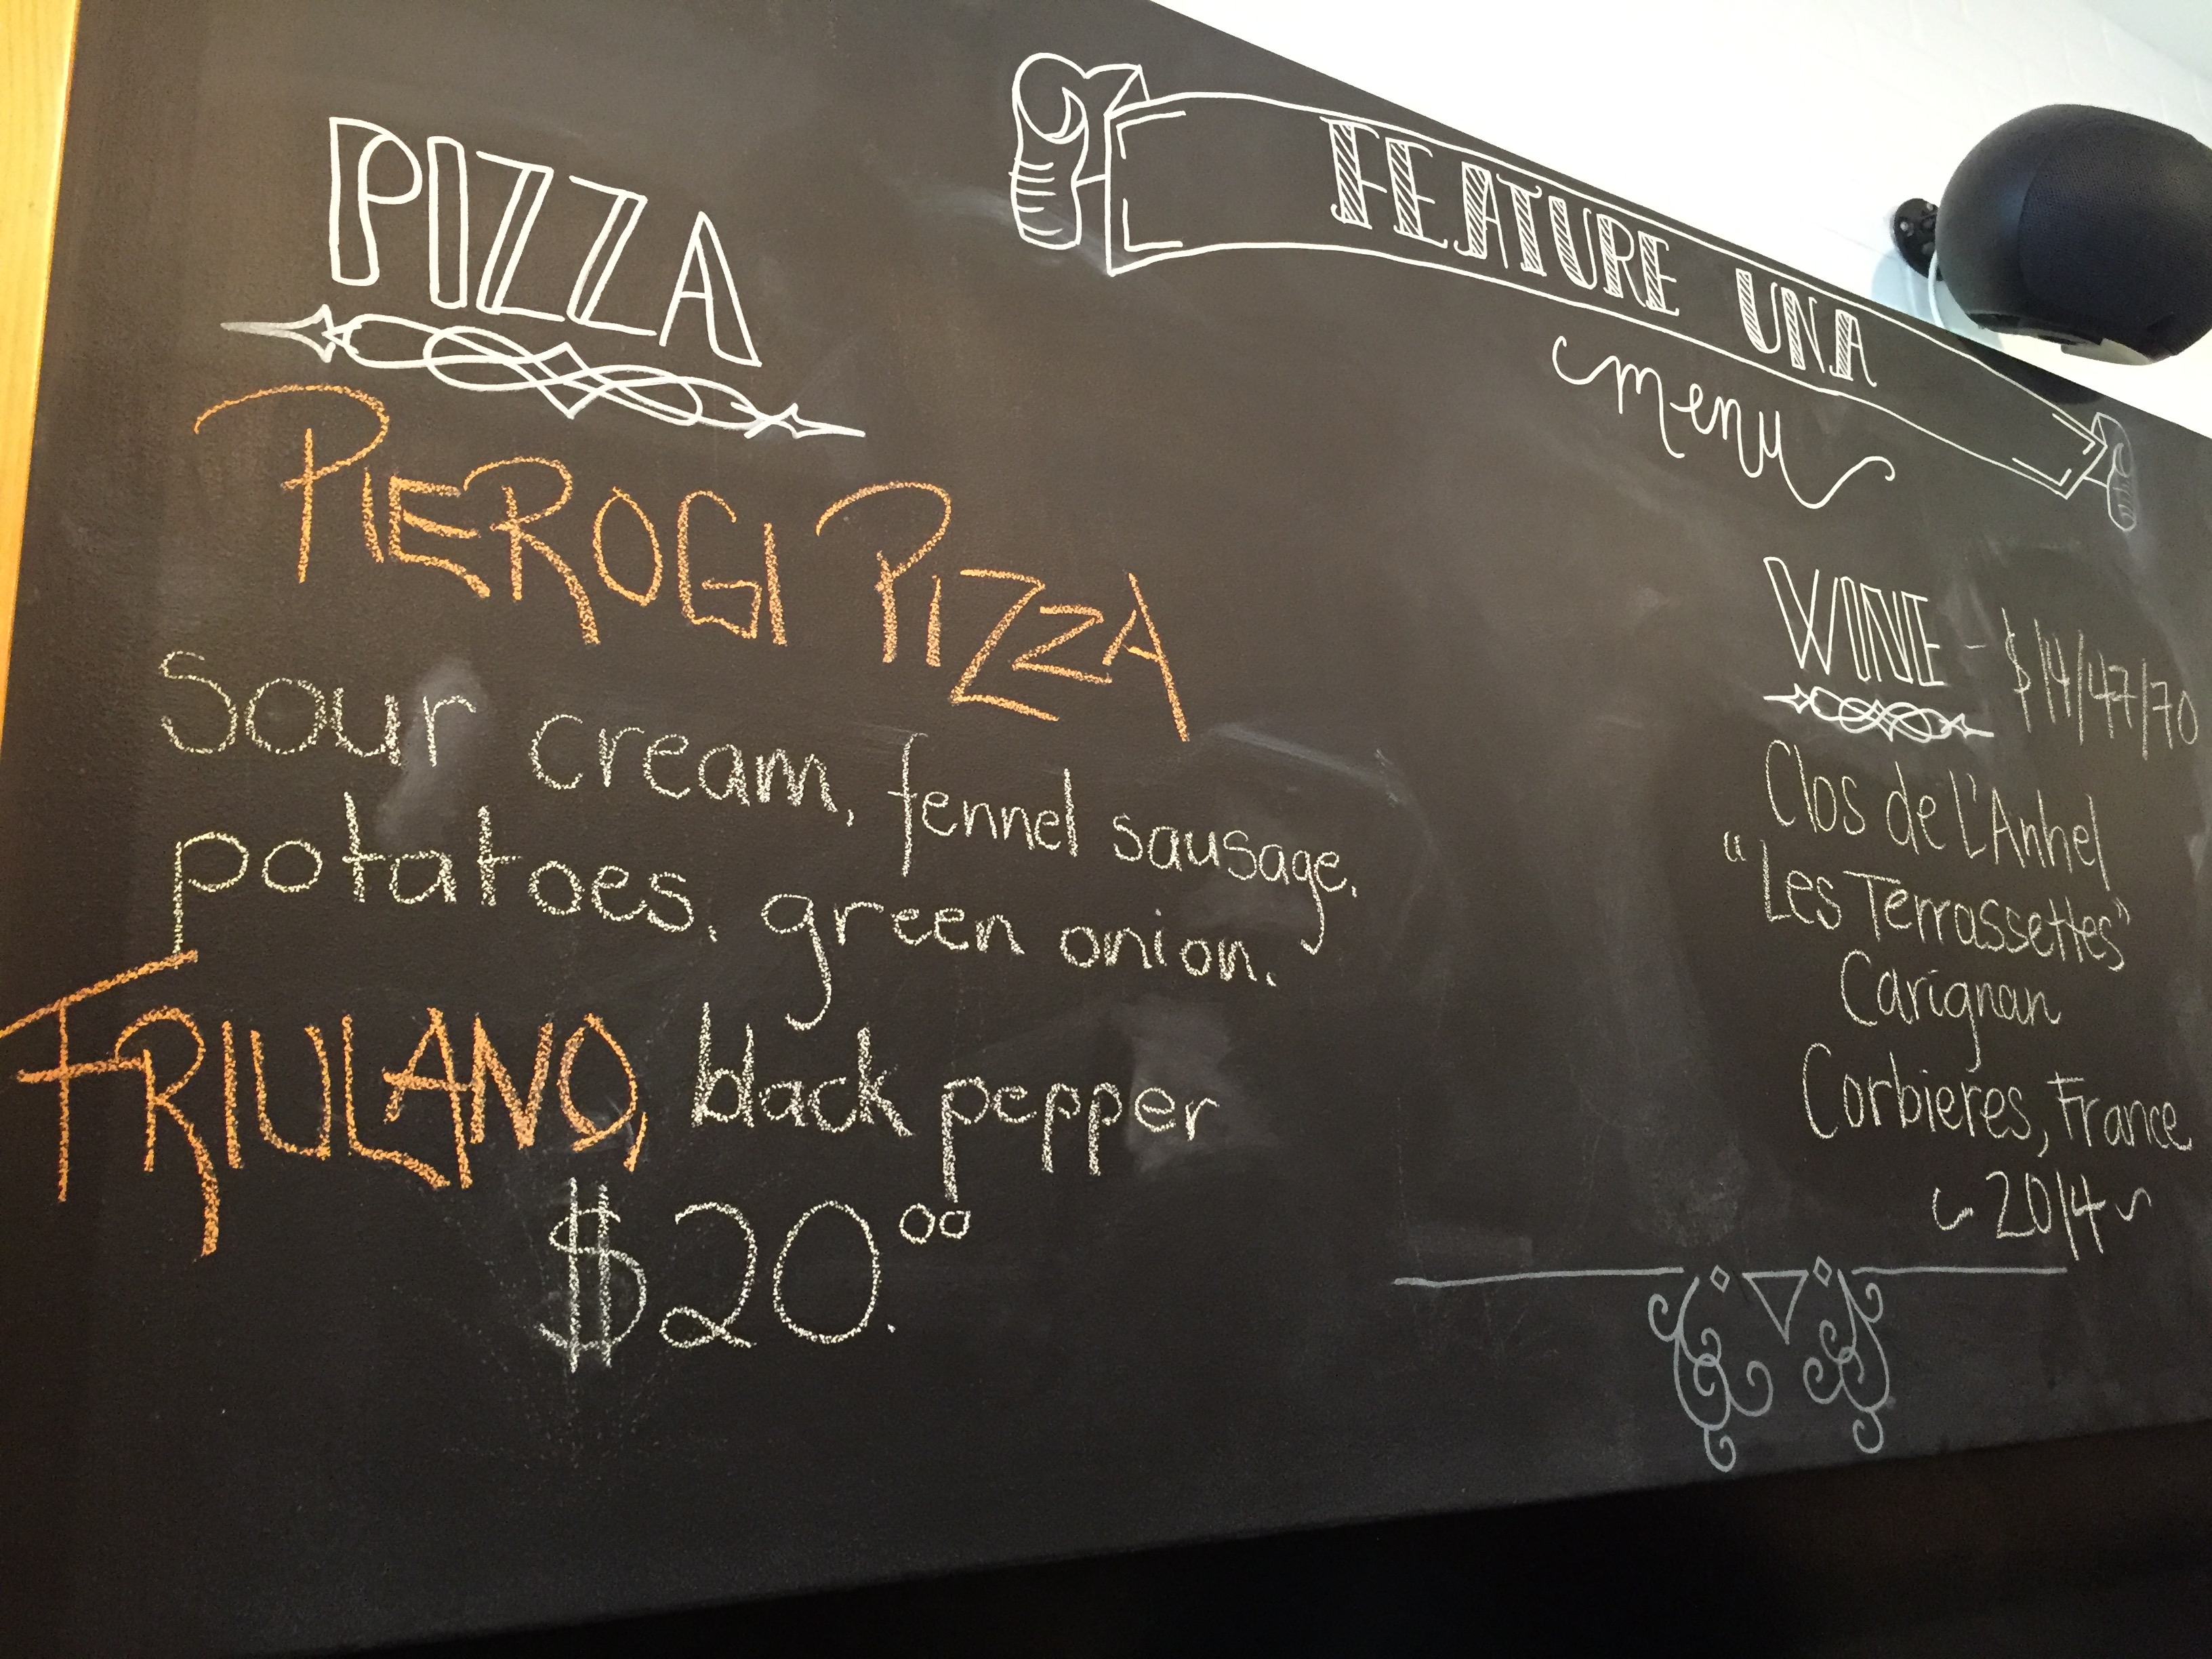 FEATURE UNA
menu
PIZZA
PIEROGI PIZZA
Sour cream, fennel sausage,
potatoes, green onion,
FRIULANO, black pepper
$20.00
WINE - $14/47/70
Clos de L'Anhel
"Les Terrassettes"
Carignan
Corbieres, France
~2014~